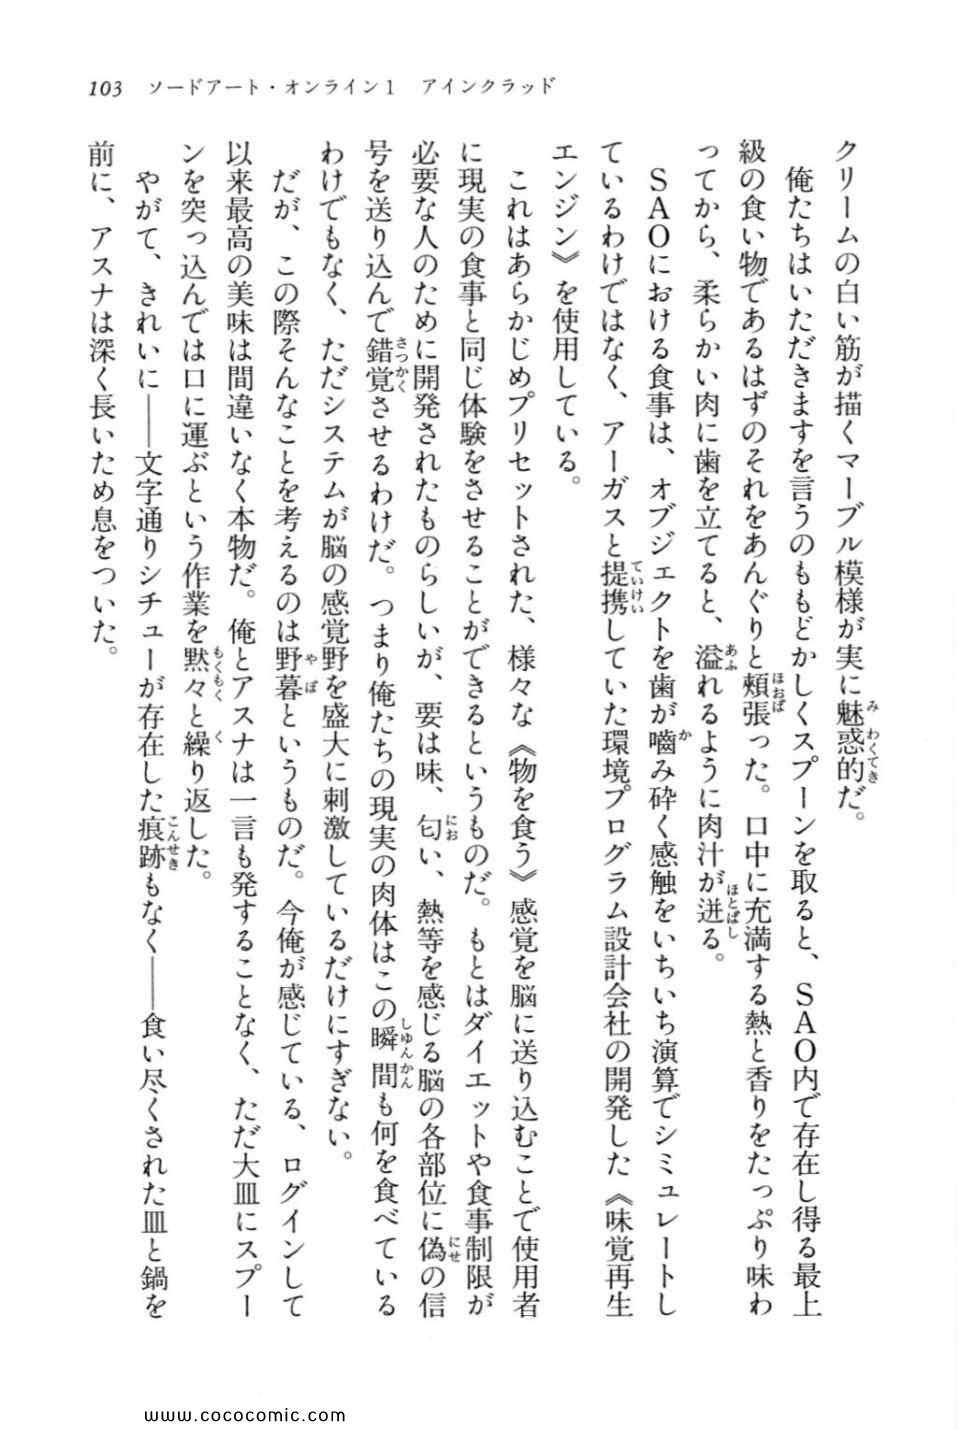 103　ソードアート・オンライン1　アインクラッド
クリームの白い筋が描くマーブル模様が実に魅惑的だ。
　俺たちはいただきますを言うのももどかしくスプーンを取ると、ＳＡＯ内で存在し得る最上
級の食い物であるはずのそれをあんぐりと頰張った。口中に充満する熱と香りをたっぷり味わ
ってから、柔らかい肉に歯を立てると、溢れるように肉汁が迸る。
　ＳＡＯにおける食事は、オブジェクトを歯が嚙み砕く感触をいちいち演算でシミュレートし
ているわけではなく、アーガスと提携していた環境プログラム設計会社の開発した《味覚再生
エンジン》を使用している。
　これはあらかじめプリセットされた、様々な《物を食う》感覚を脳に送り込むことで使用者
に現実の食事と同じ体験をさせることができるというものだ。もとはダイエットや食事制限が
必要な人のために開発されたものらしいが、要は味、匂い、熱等を感じる脳の各部位に偽の信
号を送り込んで錯覚させるわけだ。つまり俺たちの現実の肉体はこの瞬間も何を食べている
わけでもなく、ただシステムが脳の感覚野を盛大に刺激しているだけにすぎない。
　だが、この際そんなことを考えるのは野暮というものだ。今俺が感じている、ログインして
以来最高の美味は間違いなく本物だ。俺とアスナは一言も発することなく、ただ大皿にスプー
ンを突っ込んでは口に運ぶという作業を黙々と繰り返した。
　やがて、きれいに――文字通りシチューが存在した痕跡もなく――食い尽くされた皿と鍋を
前に、アスナは深く長いため息をついた。
www.cococomic.com